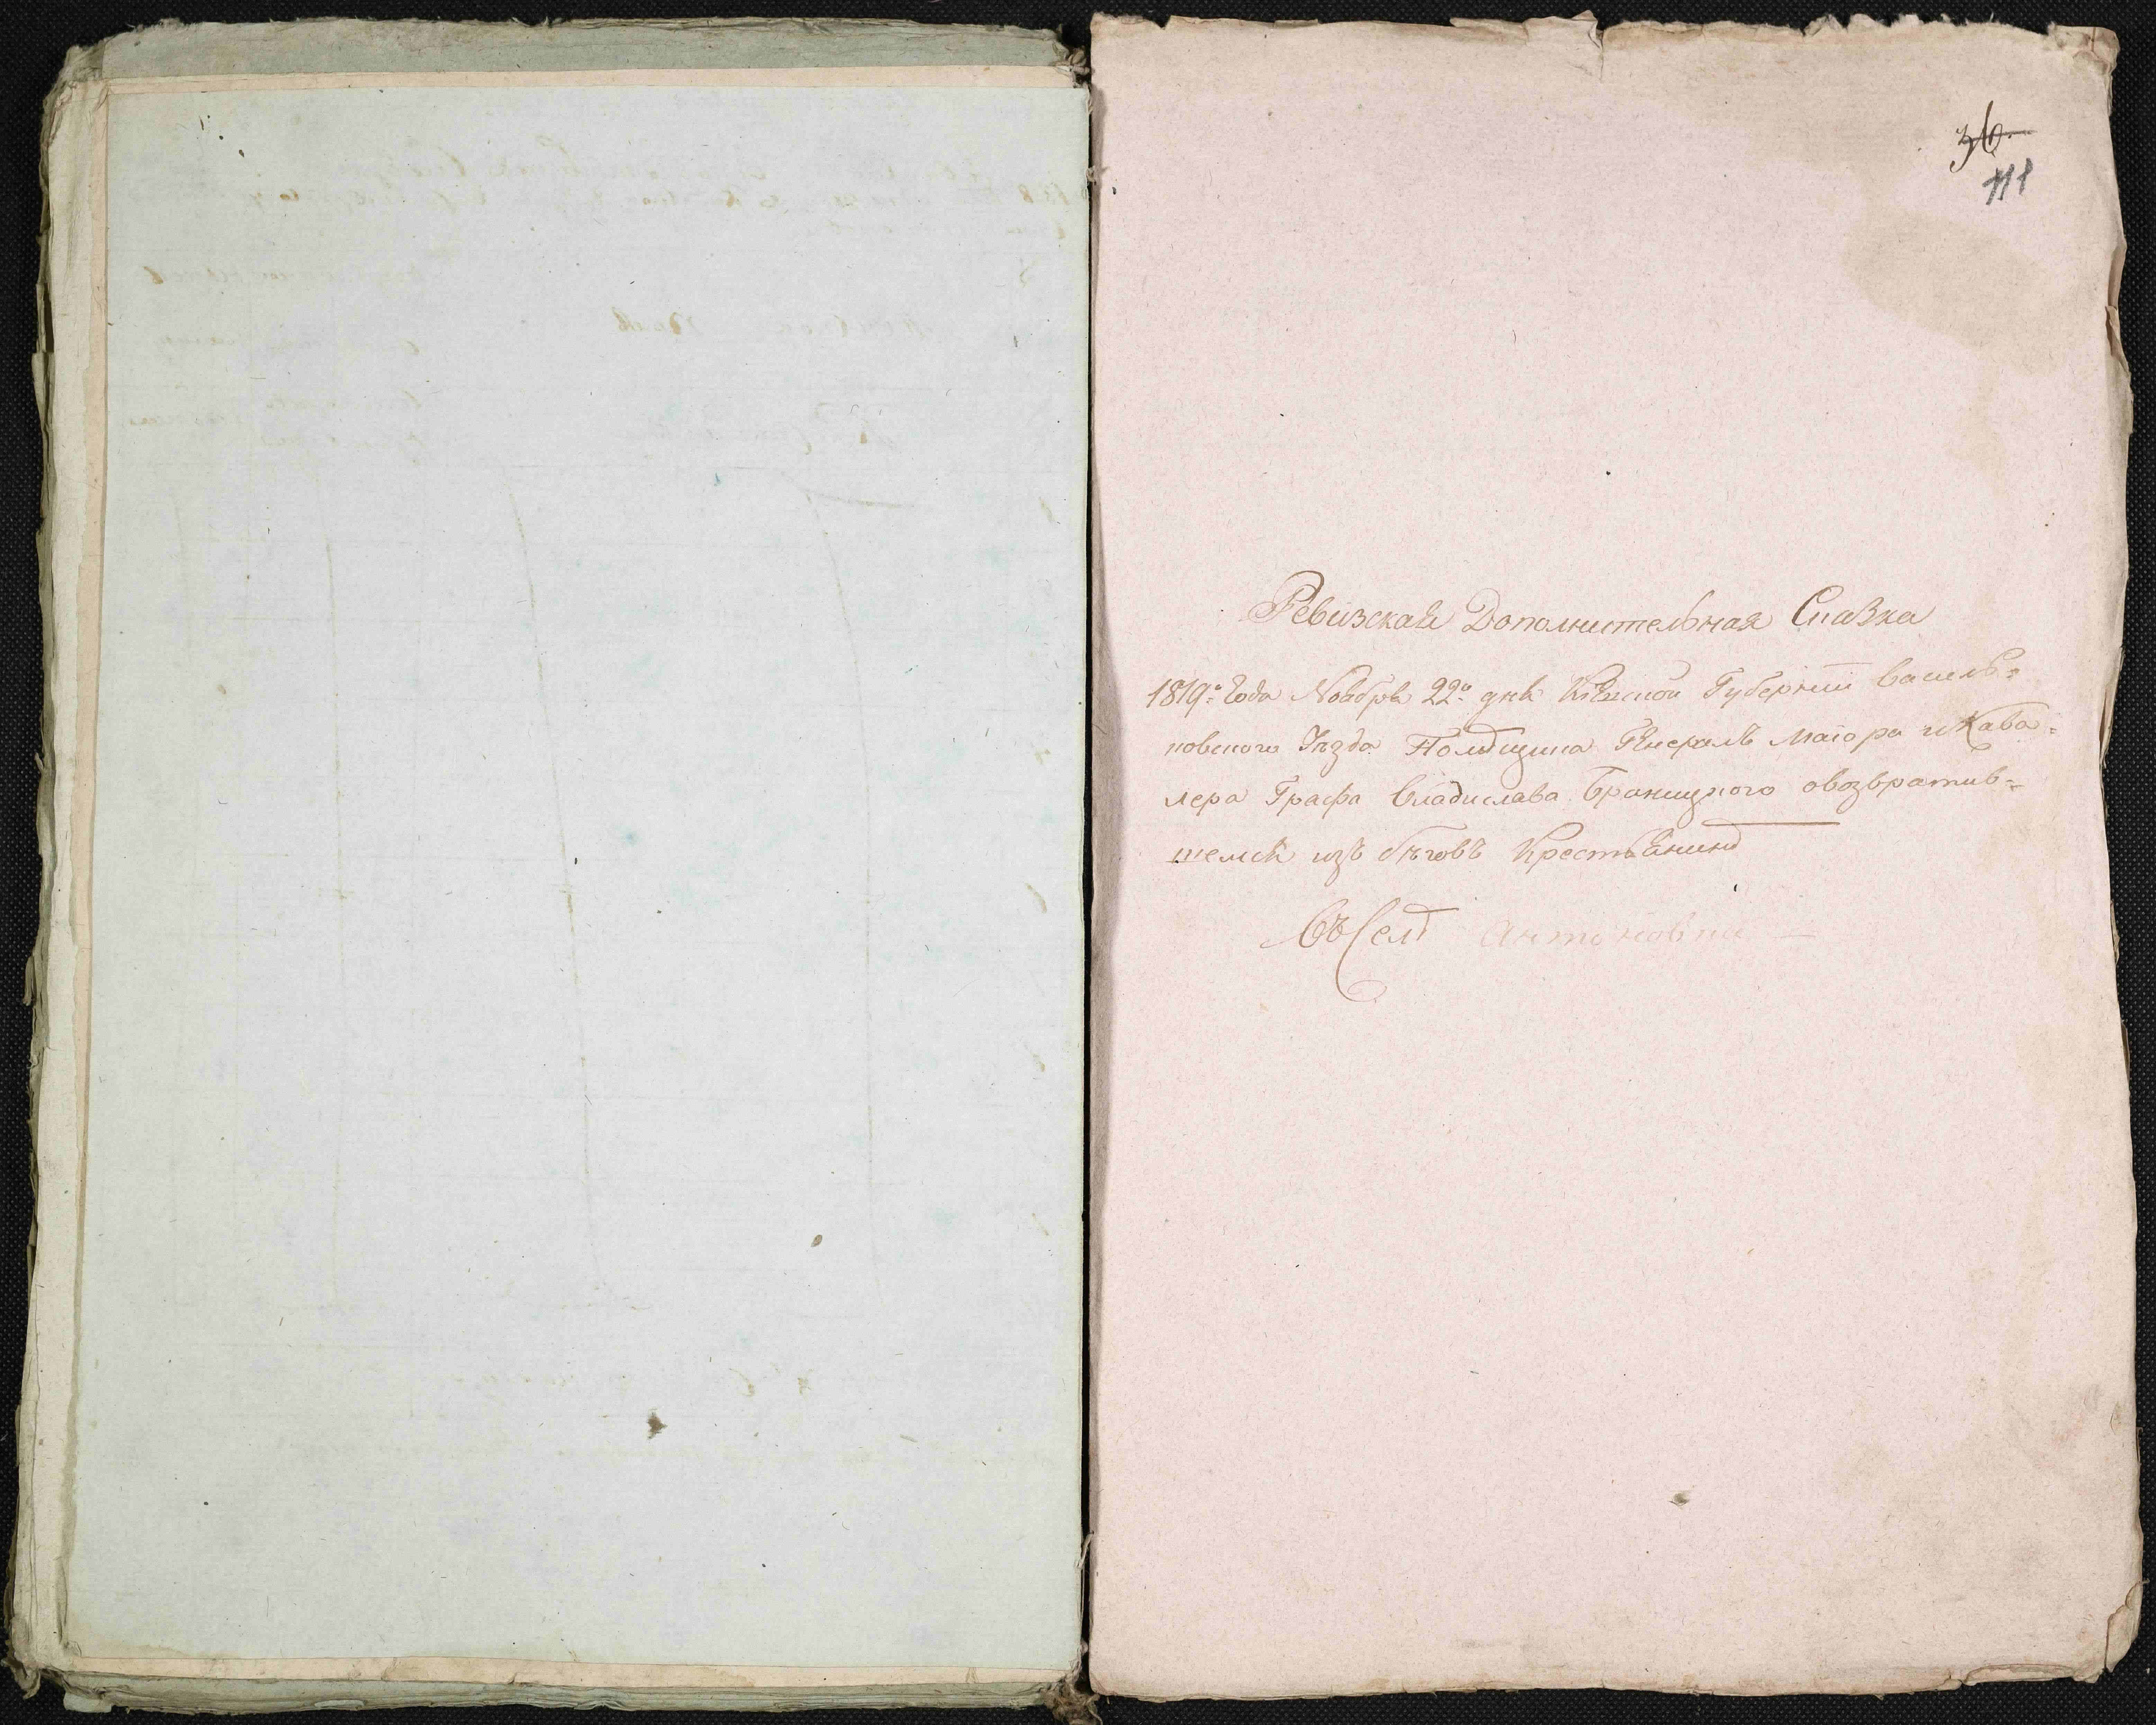 36.
111
Ревизская Дополнительная Сказка
1819го Года Ноября 22го дня Кіевской Губерніи Василь=
ковского Уѣзда Помѣщика Генералъ Маіора и Кава=
лера Графа Владислава Браницкого овозвратив=
шемся изъ бѣговъ Крестьянинѣ
Въ Селѣ Антоновки